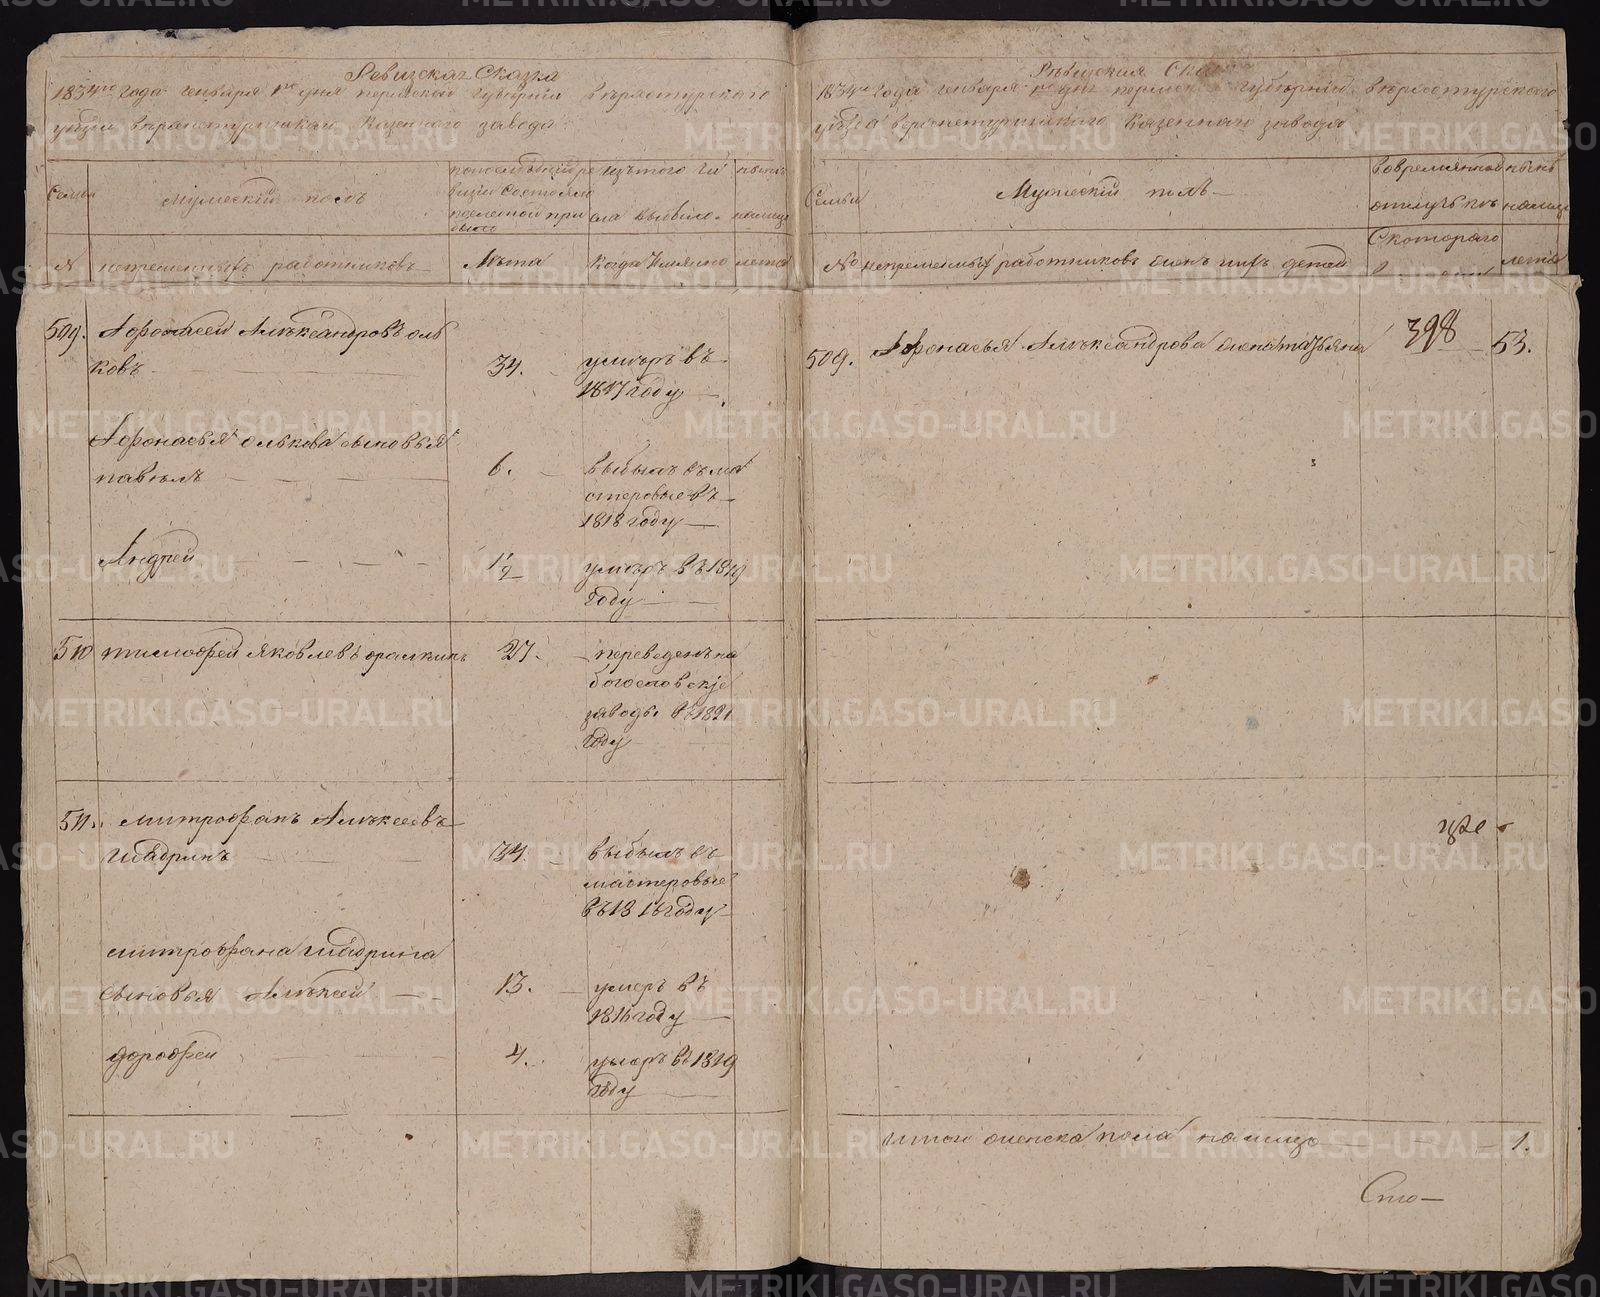 Ревизская Сказка
1834го Года Генваря 1го дня пермской Губернии верхотурскаго
уезда казеннаго завода
Семьи
Мужеский полъ
По последней ре
визии состояло
и после оной при
было
изъ того чи
сла выбыло
ныне
налицо
№
непременныхъ работниковъ
Лѣта
когда имянно
лета
509. Афонасей Алѣксандровъ оль
ковъ
34.
умѣръ въ
1817 году
Афонасья олькова сыновья
павѣлъ
6.
выбылъ въ ма
стеровые въ
1818 году
Андрей
1/2
умѣръ въ 1819
году
510 тимофей яковлевъ
27.
переведенъ на
богословские
заводы въ 1821
году
511. митрофанъ Алѣксеевъ
шадринъ
34.
выбылъ въ
мастеровые
въ 181 году
митрофана шадрина
сыновья Алѣксей
13.
умеръ въ
1816 году
дорофей
4.
умеръ въ 1819
году
Ревизская
1834го Года Генваря 1го дня губернии верхотурскаго
уезда казеннаго завода
Семьи
Мужеский полъ
Во временной
отлучке
ныне
налицо
№
непременныхъ работниковъ женъ ихъ детей
С котораго
лета
398
509. Афонасья Алѣксандрова жена татьяна
53.
Итого женска пола налицо
1.
Сто
METRIKI.GASO-URAL.RU